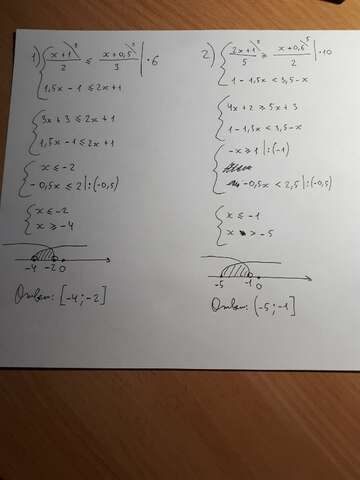 1) { (x+1)\³ / 2 ≤ (x+0,5)\² / 3 | · 6
1,5x - 1 ≤ 2x+1
{ 3x + 3 ≤ 2x + 1
1,5x - 1 ≤ 2x+1
{ x ≤ -2
-0,5x ≤ 2 |:(-0,5)
{ x ≤ -2
x ≥ -4
-4 -2 0
Ответ: [-4; -2]
2) { (2x+1)\² / 5 ≥ (x+0,6)\⁵ / 2 | · 10
1 - 1,5x < 3,5-x
{ 4x + 2 ≥ 5x + 3
1 - 1,5x < 3,5 - x
{ -x ≥ 1 |:(-1)
-0,5x < 2,5 |:(-0,5)
{ x ≤ -1
x > -5
-5 -1 0
Ответ: (-5; -1]